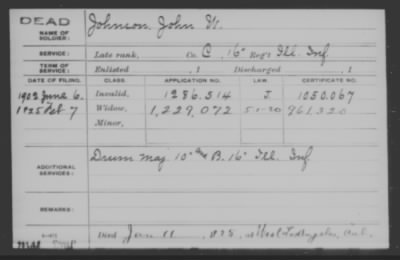 DEAD
NAME OF SOLDIER: Johnson, John W.
SERVICE: Late rank, Co. C, 16" Reg't Ill. Inf.
TERM OF SERVICE: Enlisted , 1 Discharged , 1
DATE OF FILING. CLASS. APPLICATION NO. LAW. CERTIFICATE NO.
1902 June 6. Invalid, 1286,514 J 1050.067
1925 Feb 7 Widow, 1,229,072 5-1-20 961,320
Minor,
ADDITIONAL SERVICES: Drum Maj 10" and B. 16" Ill. Inf
REMARKS:
Died Jan 11, 1925, at West